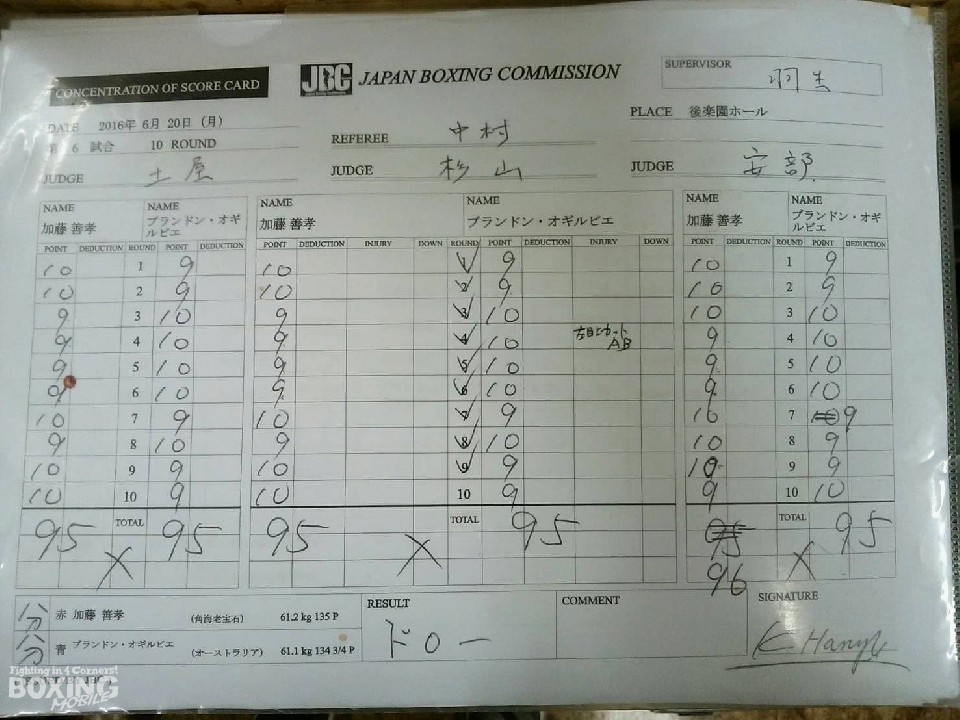 CONCENTRATION OF SCORE CARD
JBC JAPAN BOXING COMMISSION
SUPERVISOR 羽生
DATE 2016年 6月 20日 (月)
第 6 試合 10 ROUND
REFEREE 中村
PLACE 後楽園ホール
JUDGE 土屋
JUDGE 杉山
JUDGE 安部
NAME NAME NAME NAME NAME NAME
加藤 善孝 ブランドン・オギルビエ 加藤 善孝 ブランドン・オギルビエ 加藤 善孝 ブランドン・オギルビエ
POINT DEDUCTION ROUND POINT DEDUCTION POINT DEDUCTION INJURY DOWN ROUND POINT DEDUCTION INJURY DOWN POINT DEDUCTION ROUND POINT DEDUCTION
10 1 9 10 1 9 10 1 9
10 2 9 10 2 9 10 2 9
9 3 10 9 3 10 10 3 10
9 4 10 9 4 10 左目上カット AB 9 4 10
9 5 10 9 5 10 9 5 10
9 6 10 9 6 10 9 6 10
10 7 9 10 7 9 10 7 10 9
9 8 10 9 8 10 10 8 9
10 9 9 10 9 9 10 9 9
10 10 9 10 10 9 9 10 10
95 TOTAL 95 95 TOTAL 95 95 TOTAL 95
X X 96 X
分 赤 加藤 善孝 (角海老宝石) 61.2 kg 135 P
分 青 ブランドン・オギルビエ (オーストラリア) 61.1 kg 134 3/4 P
RESULT
ドロー
COMMENT
SIGNATURE
K Hanyu
Fighting in 4 Corners!
BOXING
MOBILE